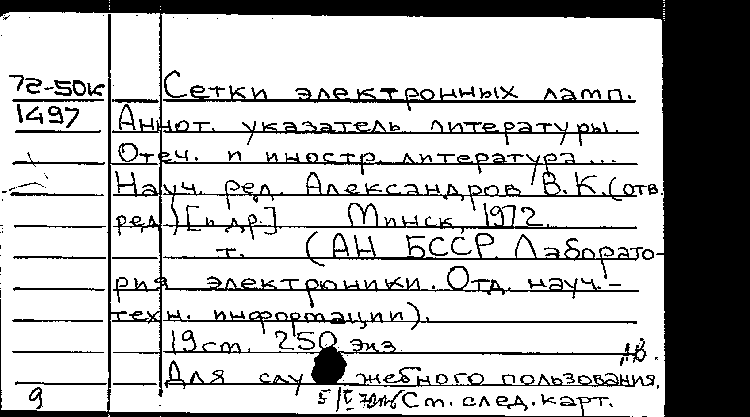 72-50к Сетки электронных ламп.
1497 Аннот. указатель литературы.
Отеч. и иностр. литература ...
Науч. ред. Александров В.К. (отв.
ред.) [и др.] Минск, 1972.
т. (АН БССР. Лаборато-
рия электроники. Отд. науч.-
техн. информации).
19 см. 250 экз.
Для служебного пользования.
9 См. след. карт.